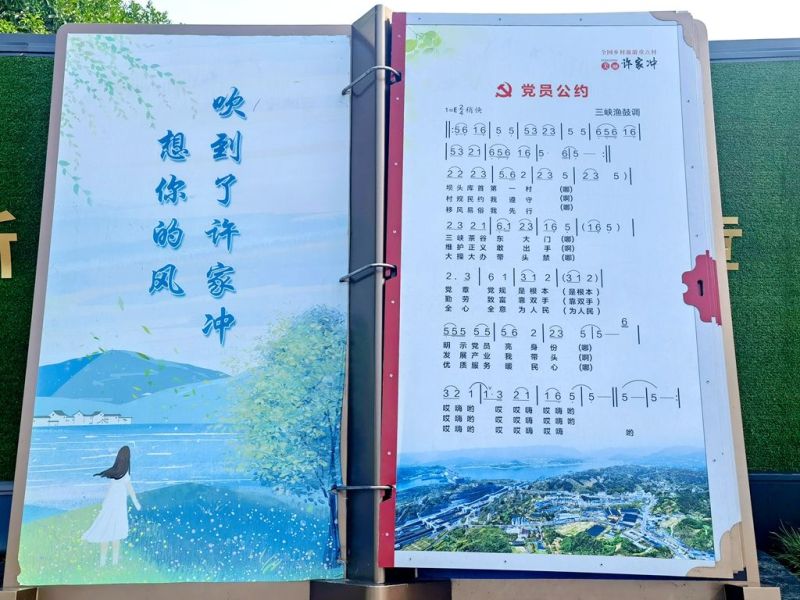 想你的风
吹到了许家冲
全国乡村旅游重点村
美丽 许家冲
党员公约
1=E 2/4 稍快
三峡渔鼓调
||: 56 16 | 5 5 | 53 23 | 5 5 | 656 16 |
53 21 | 656 16 | 5· 65 | 5 - :||
22 23 | 5·62 | 23 5 | 23 5 )|
坝头库首 第一村 (啷)
村规民约 我遵守 (啊)
移风易俗 我先行 (啷)
23 21 | 61 23 | 16 5 | (16 5 )|
三峡茶谷 东大门 (啷)
维护正义 敢出手 (啊)
大操大办 带头禁 (啷)
2. 3 | 6 1 | 31 2 | (31 2 )|
党章 党规 是根本 (是根本)
勤劳 致富 靠双手 (靠双手)
全心 全意 为人民 (为人民)
555 55 | 56 2 | 23 5 | 5 - 6 |
明示党员 亮身份 (啷)
发展产业 我带头 (啊)
优质服务 暖民心 (啷)
32 1 | 1· 3 | 23 21 | 16 5 | 5 - :|| 5 - | 5 - ||
哎嗨哟 哎 哎嗨 哎嗨哟
哎嗨哟 哎 哎嗨 哎嗨哟
哎嗨哟 哎 哎嗨 哎嗨 哟